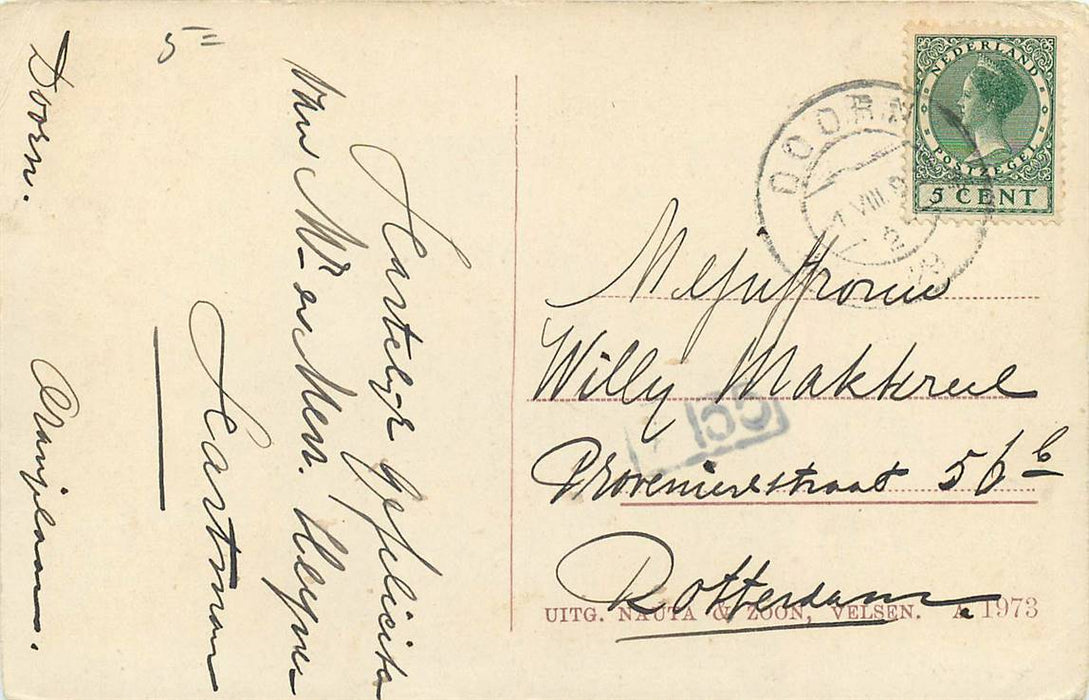 5=
Doorn. Oranjelaan.
Hartelijke gefelicita
van Mr en Mevr. Heyne
Hartman
NEDERLAND
POSTZEGEL
5 CENT
DOORN
VIII
2
Mejuffrouw
Willy Makkreel
Provenierstraat 56b
Rotterdam
155
UITG. NAUTA & ZOON, VELSEN. A 1973